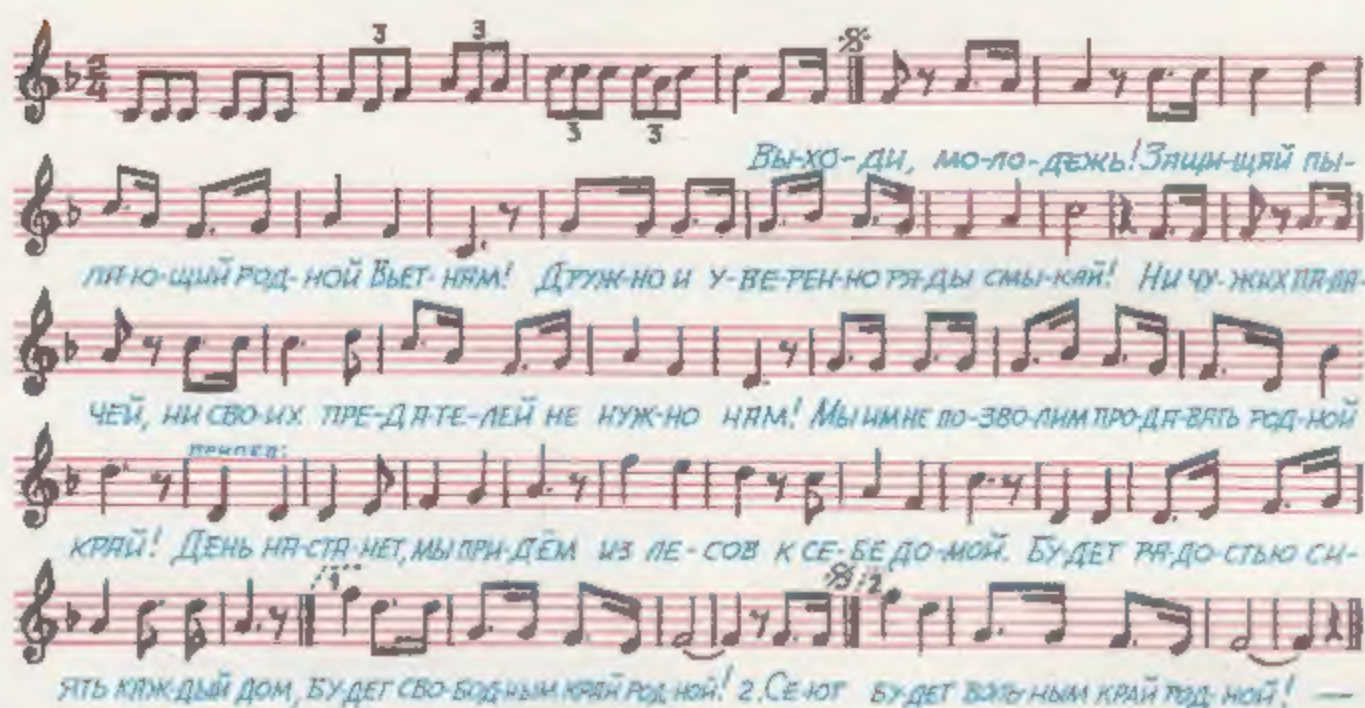 3 3
3 3
Вы-хо-ди, мо-ло-дежь! Защи-щай пы-
ла-ю-щий род-ной Вьет-нам! Друж-но и у-ве-рен-но ря-ды смы-кай! Ни чу-жих па-ла-
чей, ни сво-их пре-да-те-лей не нуж-но нам! Мы им не по-зво-лим про-да-вать род-ной
припев:
край! День на-ста-нет, мы при-дём из ле-сов к се-бе до-мой. Бу-дет ра-до-стью си-
1 2
ять каж-дый дом, бу-дет сво-бод-ным край род-ной! 2. Се-ют бу-дет воль-ным край род-ной! —